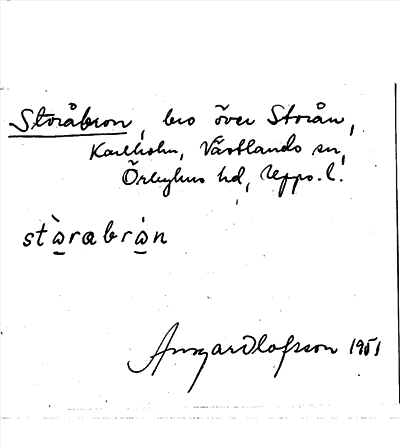 Storåbron, bro över Storån,
Karlholm, Västlands sn,
Örbyhus hd, Upps. l.
stàrabrán
Olofsson 1951